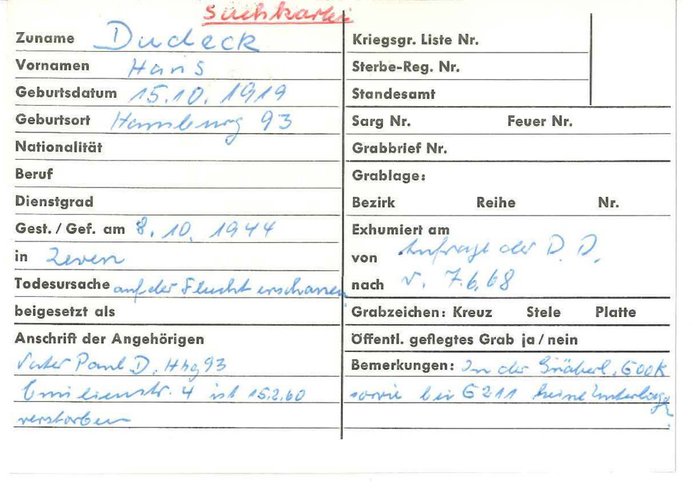 Suchkartei
Zuname Dudeck
Vornamen Hans
Geburtsdatum 15.10.1919
Geburtsort Hamburg 93
Nationalität
Beruf
Dienstgrad
Gest./Gef. am 8.10.1944
in Zeven
Todesursache auf der Flucht erschossen
beigesetzt als
Anschrift der Angehörigen
Vater Paul D. Hbg 93
Emilienstr. 4 ist 15.2.60
verstorben
Kriegsgr. Liste Nr.
Sterbe-Reg. Nr.
Standesamt
Sarg Nr. Feuer Nr.
Grabbrief Nr.
Grablage:
Bezirk Reihe Nr.
Exhumiert am
von Anfrage der D. D.
nach v. 7.6.68
Grabzeichen: Kreuz Stele Platte
Öffentl. geflegtes Grab ja/nein
Bemerkungen: In der Gräberl.
sowie bei G211 keine Unterlage